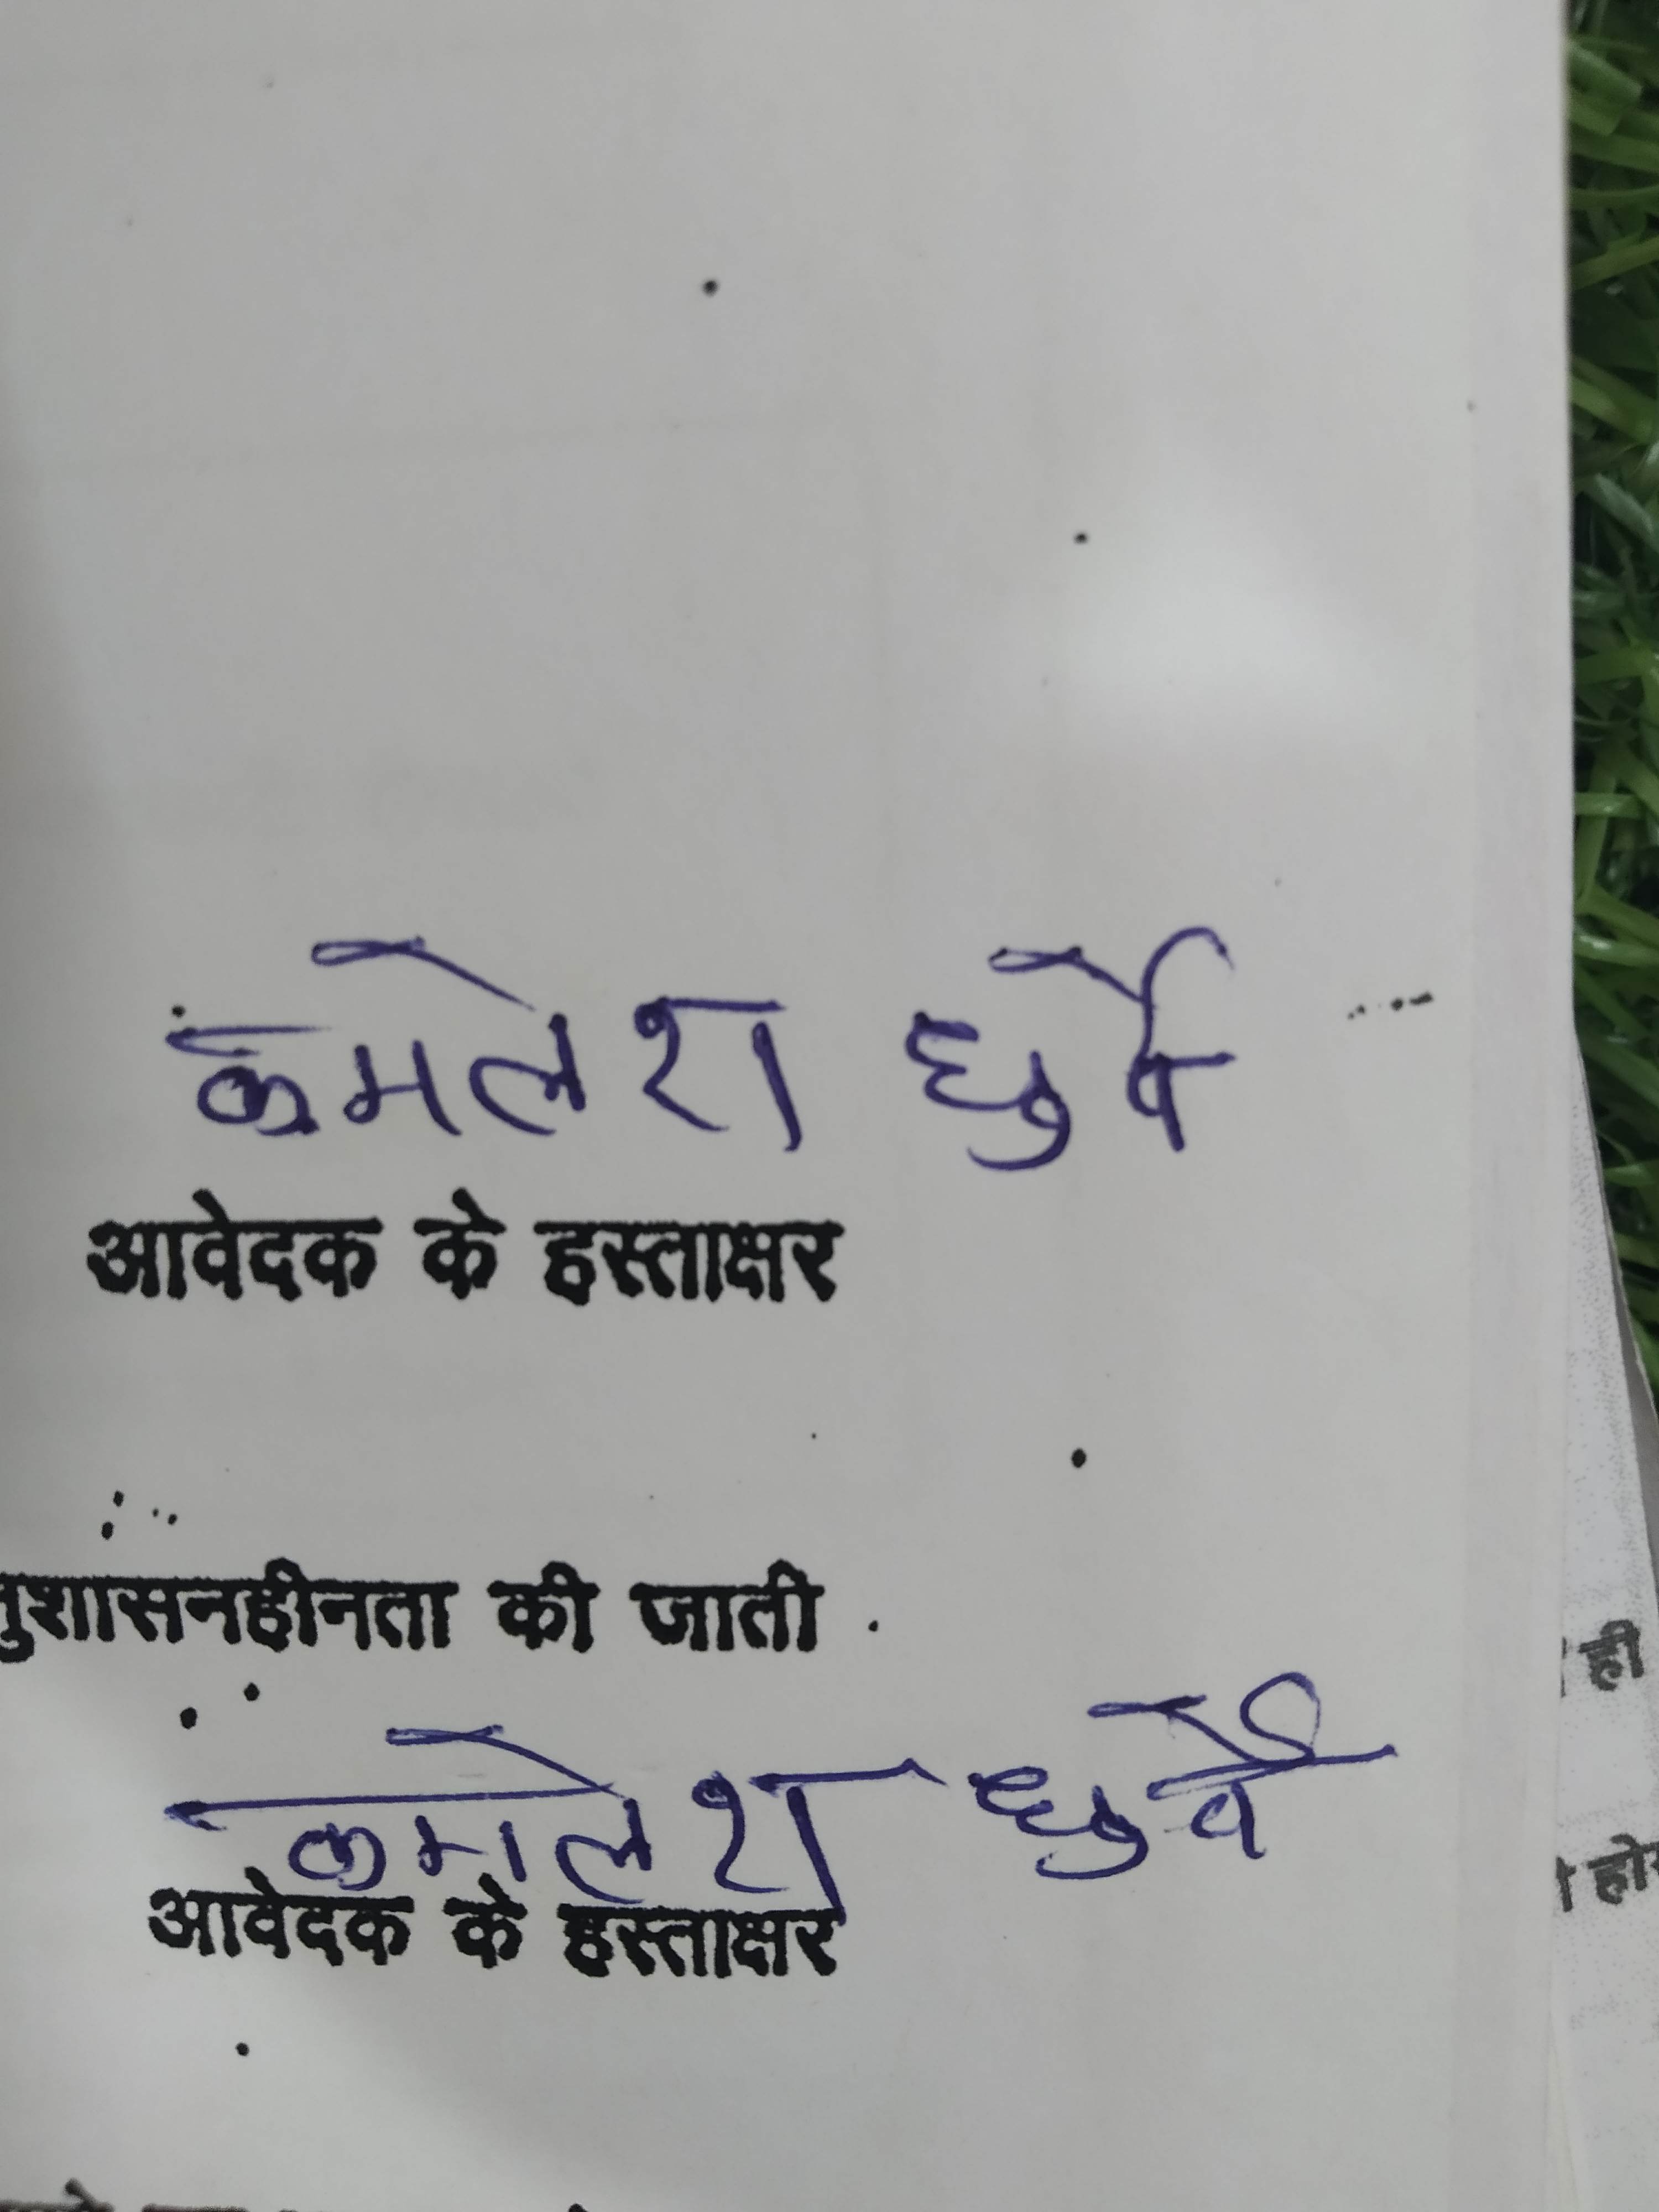 कमलेश धुर्वे
आवेदक के हस्ताक्षर
नुशासनहीनता की जाती
ही
कमलेश धुर्वे
आवेदक के हस्ताक्षर